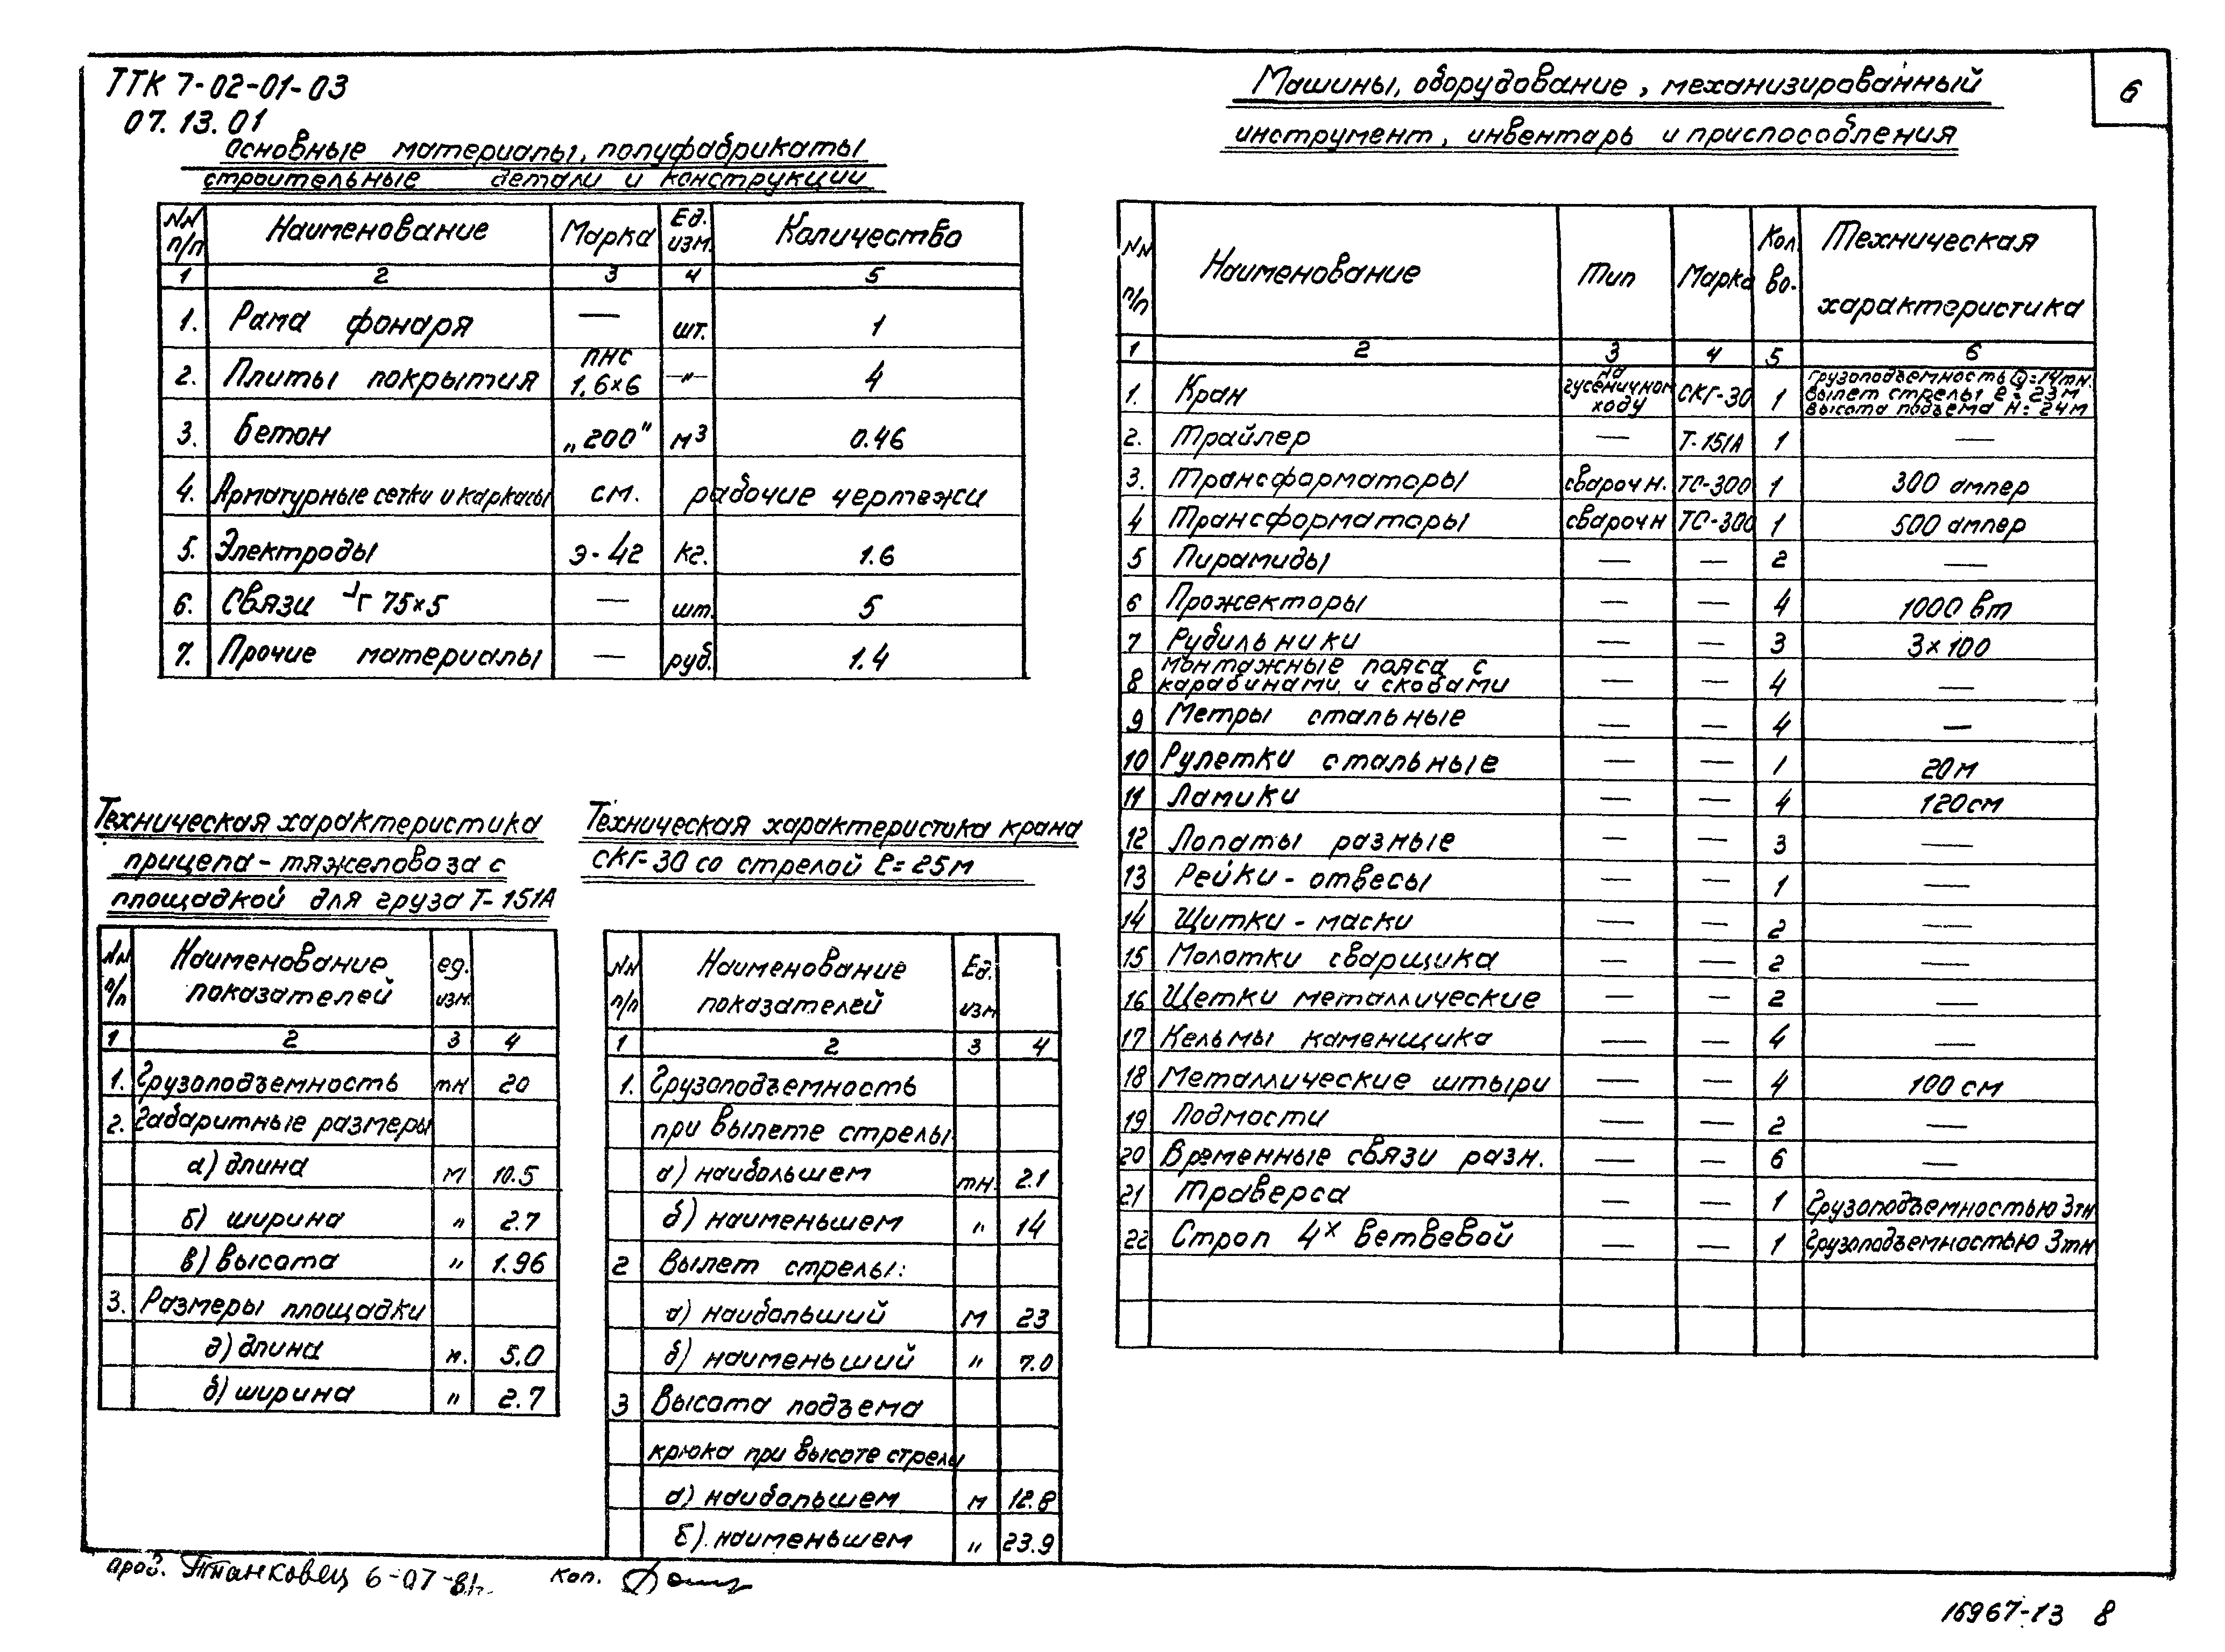 ТТК 7-02-01-03
07.13.01
6
Основные материалы, полуфабрикаты
строительные детали и конструкции
NN п/п Наименование Марка Ед. изм. Количество
1 2 3 4 5
1. Рама фонаря — шт. 1
2. Плиты покрытия ПНС 1.6×6 —"— 4
3. Бетон „200" м3 0.46
4. Арматурные сетки и каркасы см. рабочие чертежи
5. Электроды Э-42 кг. 1.6
6. Связи ┘Г 75×5 — шт. 5
7. Прочие материалы — руб. 1.4
Техническая характеристика
прицепа-тяжеловоза с
площадкой для груза Т-151А
NN п/п Наименование показателей ед. изм.
1 2 3 4
1. Грузоподъемность тн 20
2. Габаритные размеры
а) длина м 10.5
б) ширина " 2.7
в) высота " 1.96
3. Размеры площадки
а) длина м. 5.0
б) ширина " 2.7
Техническая характеристика крана
СКГ-30 со стрелой ℓ=25м
NN п/п Наименование показателей Ед. изм
1 2 3 4
1. Грузоподъемность
при вылете стрелы
а) наибольшем тн. 2.1
б) наименьшем " 14
2 Вылет стрелы:
а) наибольший м 23
б) наименьший " 7.0
3 Высота подъема
крюка при высоте стрелы
а) наибольшем м 12.8
б) наименьшем " 23.9
Машины, оборудование, механизированный
инструмент, инвентарь и приспособления
NN п/п Наименование Тип Марка Кол. во. Техническая характеристика
1 2 3 4 5 6
1. Кран на гусеничном ходу СКГ-30 1 грузоподъемность Q=14тн. вылет стрелы ℓ=23м высота подъема H=24м
2. Трайлер — Т-151А 1 —
3. Трансформаторы сварочн. ТС-300 1 300 ампер
4 Трансформаторы сварочн ТС-300 1 500 ампер
5 Пирамиды — — 2 —
6 Прожекторы — — 4 1000 вт
7 Рубильники — — 3 3×100
8 монтажные пояса с карабинами и скобами — — 4 —
9 Метры стальные — — 4 —
10 Рулетки стальные — — 1 20м
11 Ламики — — 4 120см
12 Лопаты разные — — 3 —
13 Рейки-отвесы — — 1 —
14 Щитки-маски — — 2 —
15 Молотки сварщика — — 2 —
16 Щетки металлические — — 2 —
17 Кельмы каменщика — — 4 —
18 Металлические штыри — — 4 100 см
19 Подмости — — 2 —
20 Временные связи разн. — — 6 —
21 Траверса — — 1 Грузоподъемностью 3тн
22 Строп 4х ветвевой — — 1 Грузоподъемностью 3тн
6-07-81г. Коп.
16967-13 8